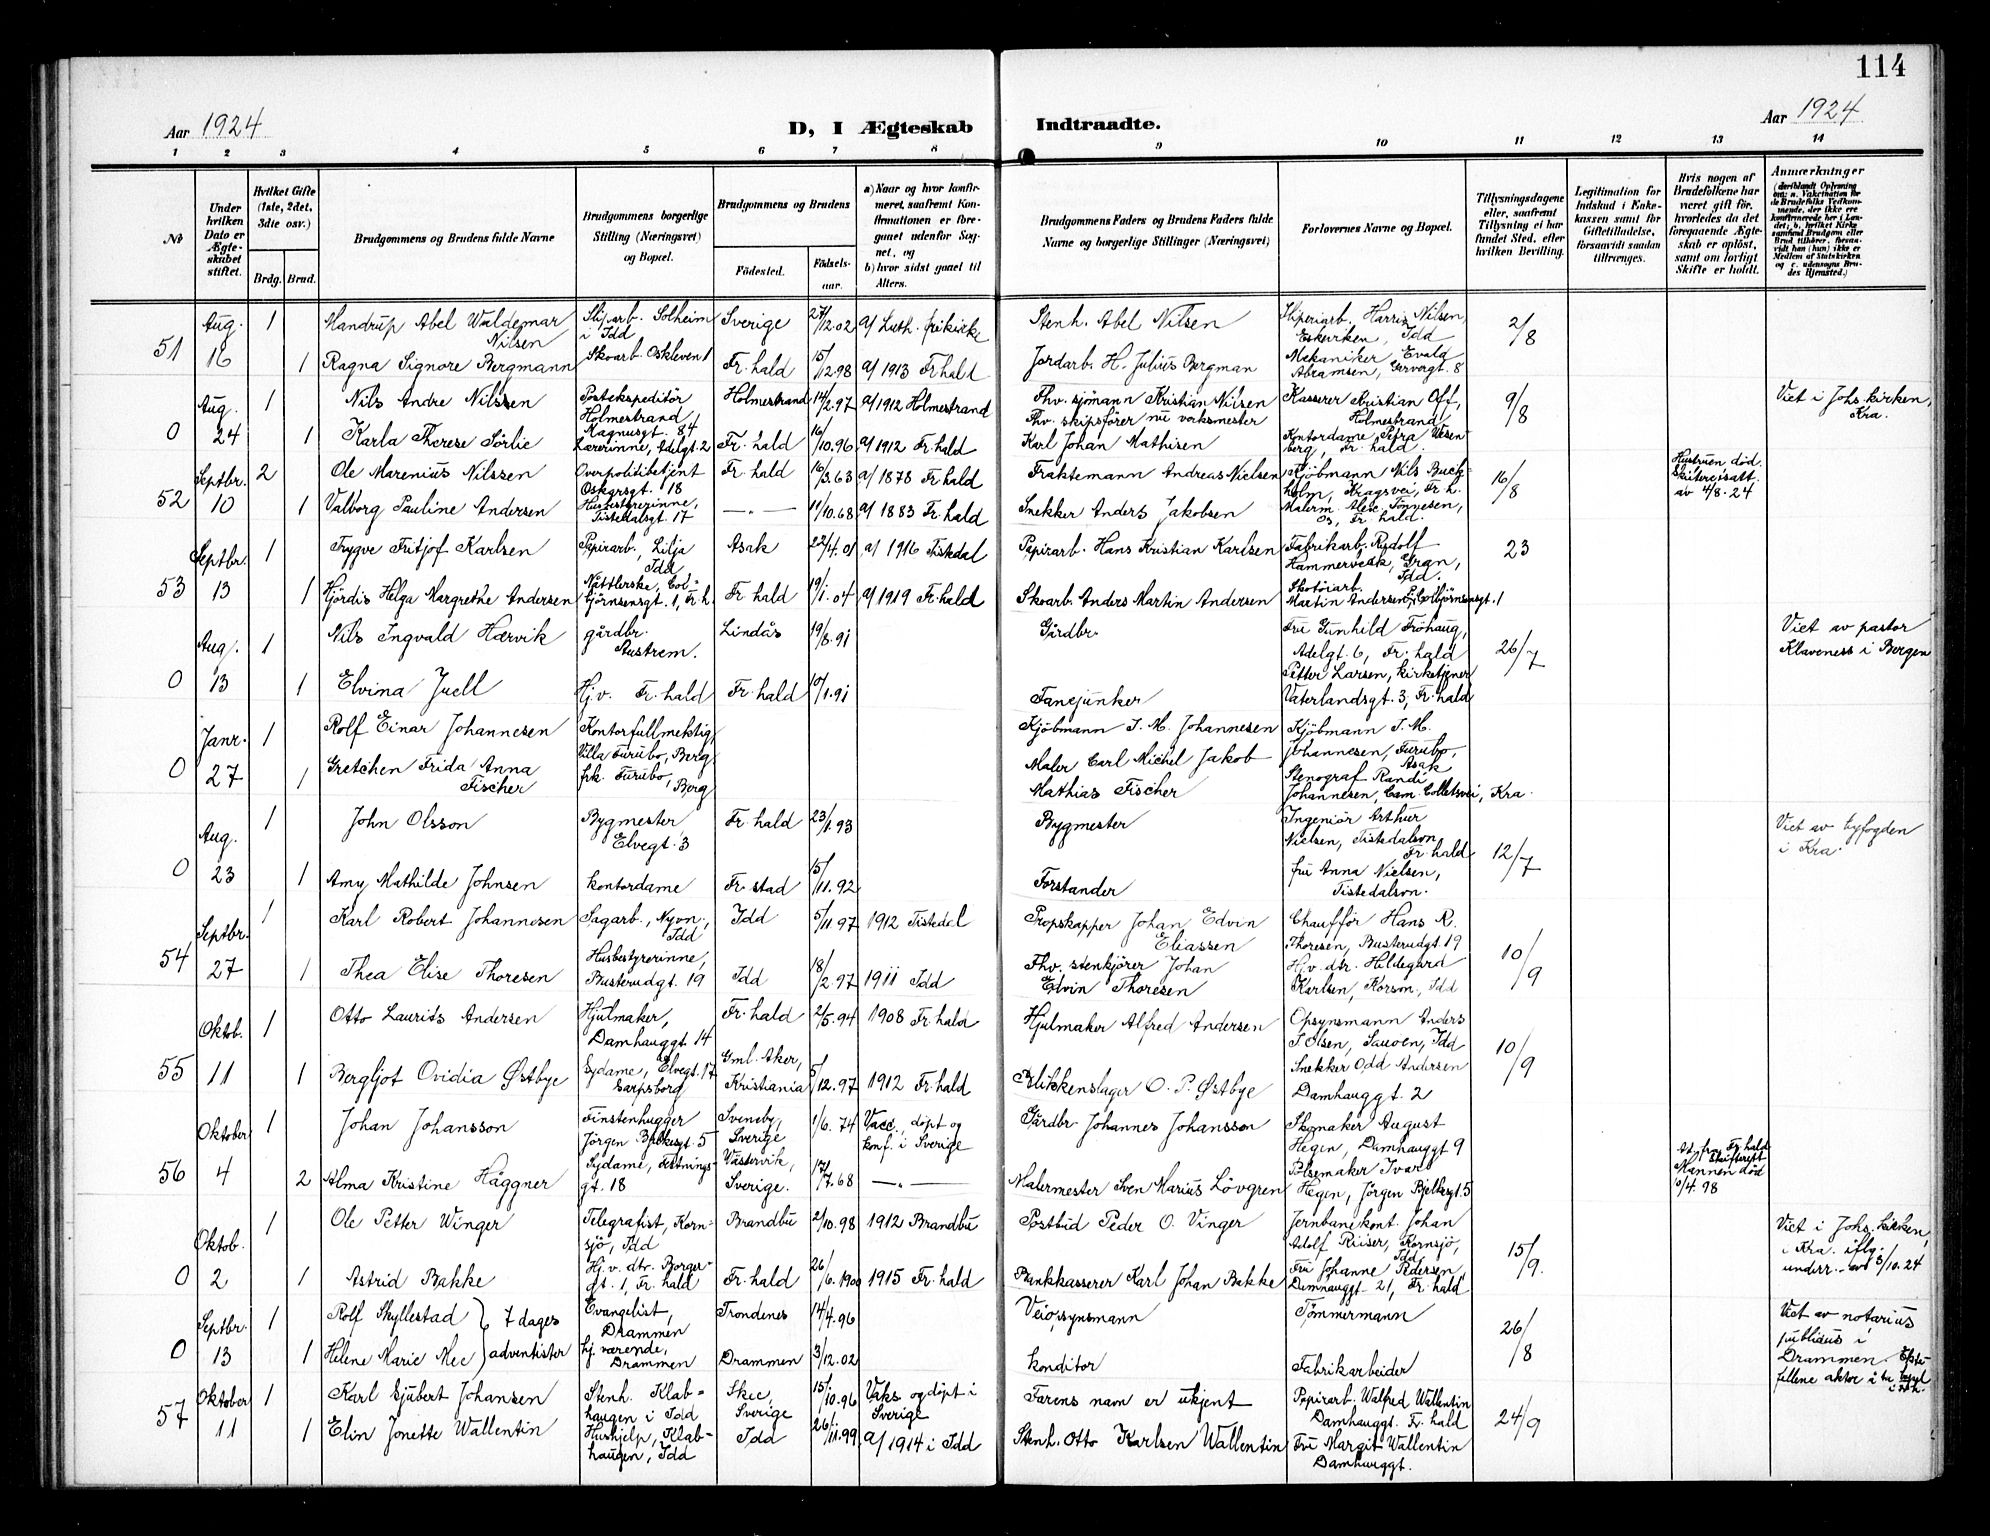 114
Aar 1924
D, I Ægteskab Indtraadte.
Aar 1924
1 2 3 4 5 6 7 8 9 10 11 12 13 14
No
Under hvilken Dato er Ægteskabet stiftet.
Hvilket Gifte (1ste, 2det, 3die osv.)
Brdg. Brud.
Brudgommens og Brudens fulde Navne
Brudgommens borgerlige Stilling (Næringsvei) og Bopæl.
Brudgommens og Brudens
Fødested. Fødselsaar.
a) Naar og hvor konfirmeret, saafremt Konfirmationen er foregaaet udenfor Sognet, og
b) hvor sidst gaaet til Alters.
Brudgommens Faders og Brudens Faders fulde Navne og borgerlige Stillinger (Næringsvei)
Forlovernes Navne og Bopæl.
Tillysningsdagene eller, saafremt Tillysning ei har fundet Sted, efter hvilken Bevilling.
Legitimation for Indskud i Enkekassen samt for Giftetilladelse, forsaavidt saadan tiltrænges.
Hvis nogen af Brudefolkene har været gift før, hvorledes da det foregaaende Ægteskab er opløst, samt om lovligt Skifte er holdt.
Anmærkninger
51 Aug. 16
1 Mandrup Abel Waldemar Nilsen
Sliparb. Solheim i Idd
Sverige 27/12.02 a/ Luth. frikirke
Stenh. Abel Nilsen
Sliperiarb. Harris Nilsen, Eskeviken, Idd
2/8
1 Ragna Signore Bergmann
Skoarb. Oskleven 1
Fr.hald 15/12.98 a/ 1913 Fr hald
Jordarb. H. Julius Bergman
Mekaniker, Evald Abramsen, Garvergt. 8
0 Aug. 24
1 Nils Andre Nilssen
Postekspeditör Holmestrand
Holmestrand 14/2.97 a/ 1912 Holmestrand
Fhv. sjömann Kristian Nilsen
Kasserer Kristian Oft, Holmestrand
9/8
Viet i Johs kirken, Kra.
1 Karla Therese Sörlie
Magnusgt. 84
Lærerinne, Adelgt. 2
Fr. hald 16/10.96 a/ 1912 Fr. hald
Fhv. skipsförer nu vaksmester Karl Johan Mathisen
Kontordame, Petra Wesenberg, Fr. hald
52 Septbr. 10
2 Ole Marenius Nilssen
Overpolitibetjent Oskarsgt. 18
Fr. hald 16/3.63 a/ 1878 Fr. hald
Fraktemann Andreas Nielsen
Kjöbmann Nils Buckholm, Kragsvei, Fr. h.
16/8
Hustruen död. Skifterettsatt. av 4/8.24
1 Valborg Pauline Andersen
Husbestyrerinne, Tistedalsgt. 17
— „ — 11/10.68 a/ 1883 Fr. hald
Snekker Anders Jakobsen
Malerm. Alex. Tönnesen, Os, Fr. hald.
53 Septbr. 13
1 Trygve Fritjof Karlsen
Papirarb., Lilja Idd
Asak 22/4.01 a/ 1916 Tistedal
Papirarb. Hans Kristian Karlsen
Fabrikarb. Rudolf Hammerveak, Gran, Idd.
23
1 Hjördis Helga Margrethe Andersen
Nåttlerske, Colbjörnsensgt. 1, Fr. h.
Fr. hald 19/1.04 a/ 1919 Fr. hald
Skoarb. Anders Martin Andersen
Skotöiarb. Martin Andersen, Colbjörnsensgt. 1
0 Aug. 13
1 Nils Ingvald Hærvik
gårdbr. Austrem.
Lindås 19/8.91
Gårdbr.
Fru Gunhild Fröhaug, Adelgt. 6, Fr. hald
26/7
Viet av pastor Klaveness i Bergen
1 Elvina Juell
Hj.v. Fr. hald
Fr. hald 10/1.91
Fanejunker
Petter Larsen, kirketjener Vaterlandsgt. 3, Fr. hald
0 Janr. 27
1 Rolf Einar Johannesen
Kontorfullmektig, Villa Furubo, Berg
Kjöbmann J. M. Johannesen
Kjöbmann J. M. Johannesen, Furubo, Asak
1 Gretchen Frida Anna Fischer
frk. Furubo, Berg
Maler Carl Michel Jakob Mathias Fischer
Stenograf Randi Johannesen, Cam. Colletsvei, Kra.
0 Aug. 23
1 John Olsson
Bygmester Elvegt. 3
Fr. hald 23/1.93
Bygmester
Ingeniör Arthur Nielsen, Tistedalson, Fr. hald
12/7
Viet av byfogden i Kra.
1 Amy Mathilde Johnsen
kontordame
Fr. stad 15/11.92
Forstander
fru Anna Nielsen, Tistedalson.
54 Septbr. 27
1 Karl Robert Johannesen
Sagarb., Nyvn., Idd
Idd 5/11.97 1912 Tistedal
Propskapper Johan Edvin Eliassen
Chauffør Hans R. Thoresen, Busterudgt. 19
10/9
1 Thea Elise Thoresen
Husbestyrerinne, Busterudgt. 19
Idd 18/2.97 1911 Idd
Fhv. stenkjörer Johan Edvin Thoresen
Hj.v. dtr. Hildegard Karlsen, Korson, Idd
55 Oktob. 11
1 Otto Laurits Andersen
Hjulmaker, Damhauggt. 14
Fr. hald 2/5.94 1908 Fr. hald
Hjulmaker Alfred Andersen
Opsynsmann Anders J. Olsen, Sauöen, Idd
10/9
1 Bergljot Ovidia Østbye
Sydame, Elvegt. 17 Sarpsborg
Gml. Aker, Kristiania 5/12.97 1912 Fr. hald
Blikkenslager O. P. Østbye
Snekker Odd Andersen Damhauggt. 2
56 Oktober 4
1 Johan Johansson
Finstenhugger Jörgen Bjelkesgt. 5
Sveneby, Sverige 1/6.74 Vacc., döpt og konf. i Sverige
Gårdbr. Johannes Johansson
Skomaker August Hegen, Damhauggt 9
At. fra Fr. hald Skifterett Mannen död 10/4.98
2 Alma Kristine Häggner
Sydame, Festningsgt. 18
Västervik, Sverige. 17/7.68 — „ —
Malermester Sven Marius Lövgren
Pölsemaker Ivar Hegen, Jörgen Bjelkesgt. 5
0 Oktob. 2
1 Ole Petter Winger
Telegrafist, Kornsjö, Idd
Brandbu 2/10.98 1912 Brandbu
Postbud Peder O. Vinger
Jernbanekont. Johan Adolf Riiser, Kornsjö, Idd
15/9.
Viet i Johs. kirken, i Kra. iflg. underr. av 3/10.24
1 Astrid Bakke
Hj.v. dtr. Borgergt. 1, Fr. hald
Fr. hald 26/6.1900 1915 Fr. hald
Bankkasserer Karl Johan Bakke
Fru Johanne Pedersen, Damhauggt. 21, Fr. hald
0 Septbr. 13
Rolf Skyllestad } 7 dages
Evangelist, Drammen
Trondenes 14/4.96
Veiopsynsmann
Tömmermann
26/8
Viet av notarius publicus i Drammen.
1 Helene Marie Moe } adventister
hj.værende, Drammen
Drammen 3/12.02
konditor
Fabrikarbeider
57 Oktober 11
1 Karl Gjubert Johansen
Stenh. Klabhaugen i Idd
Skee, Sverige 15/10.96 Vaks og döpt i Sverige
Farens navn er ukjent
Papirarb. Walfred Wallentin Damhauggt. Fr. hald
24/9
1 Elin Jonette Wallentin
Hushjelp, Klabhaugen, Idd
Idd 26/11.99 a/ 1914 i Idd
Stenh. Otto Karlsen Wallentin
Fru Margit Wallentin Damhauggt.